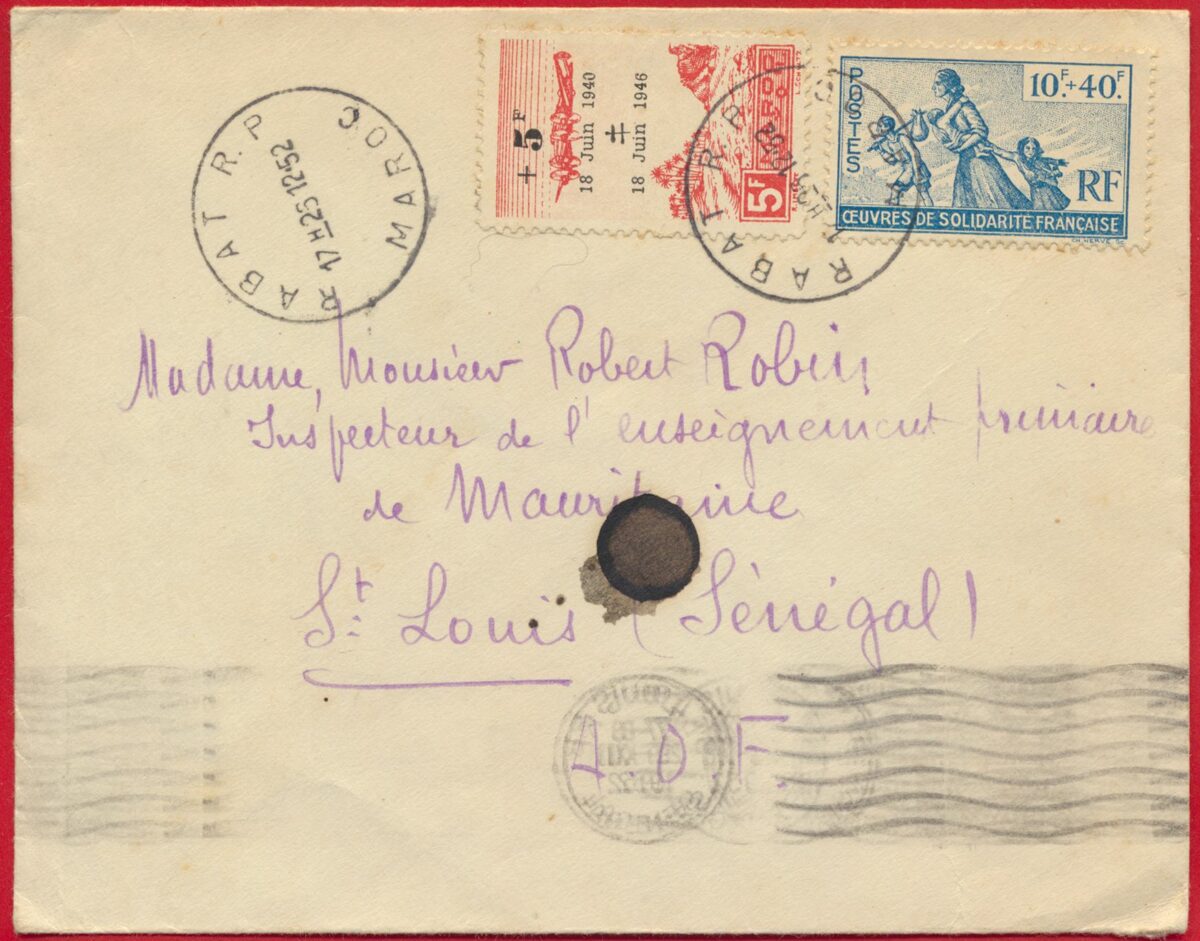 + 5F
18 Juin 1940
18 Juin 1946
MAROC
5F
POSTES
10F.+40F.
RF
ŒUVRES DE SOLIDARITÉ FRANÇAISE
CH. HERVÉ SC.
RABAT R.P
17H25 12-52
MAROC
RABAT R P
Madame, Monsieur Robert Robin
Inspecteur de l'enseignement primaire
de Mauritanie
St. Louis (Sénégal)
A.O.F.